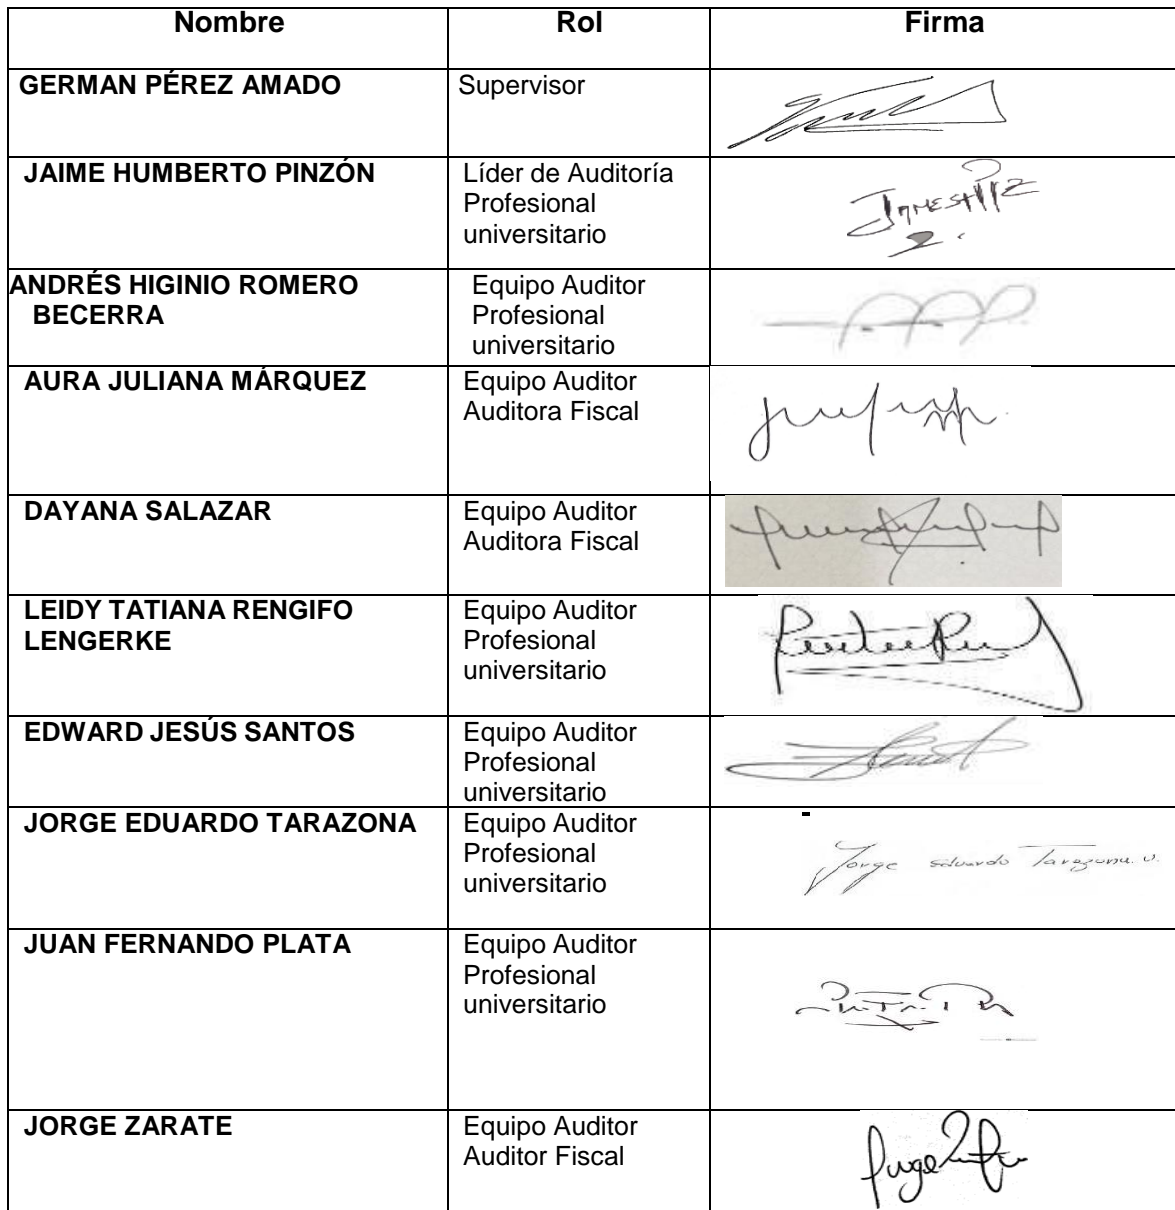 Nombre Rol Firma
GERMAN PÉREZ AMADO Supervisor
JAIME HUMBERTO PINZÓN Líder de Auditoría
Profesional
universitario
ANDRÉS HIGINIO ROMERO Equipo Auditor
BECERRA Profesional
universitario
AURA JULIANA MÁRQUEZ Equipo Auditor
Auditora Fiscal
DAYANA SALAZAR Equipo Auditor
Auditora Fiscal
LEIDY TATIANA RENGIFO Equipo Auditor
LENGERKE Profesional
universitario
EDWARD JESÚS SANTOS Equipo Auditor
Profesional
universitario
JORGE EDUARDO TARAZONA Equipo Auditor
Profesional Jorge Eduardo Tarazona. V.
universitario
JUAN FERNANDO PLATA Equipo Auditor
Profesional
universitario
JORGE ZARATE Equipo Auditor
Auditor Fiscal